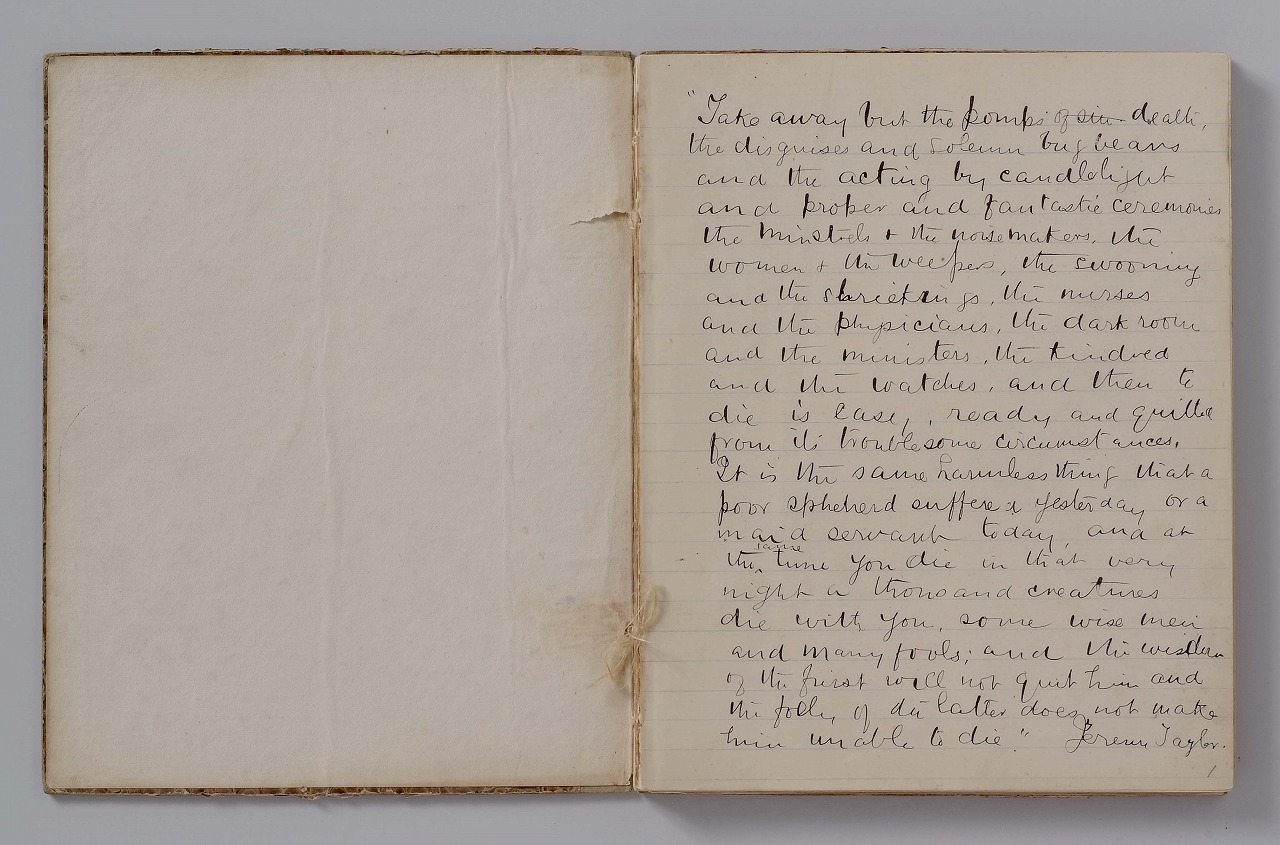 "Take away but the pomps of sin death,
the disguises and solemn bug beans
and the acting by candlelight
and proper and fantastic ceremonies
the minstrels + the noisemakers, the
women + the weepers, the swooning
and the shriekings, the nurses
and the physicians, the dark room
and the ministers, the kindred
and the watches, and then to
die is easy, ready and quitted
from its troublesome circumstances.
It is the same harmless thing that a
poor spheherd suffered yesterday or a
maid servant today, and at
the same time you die in that very
night a thousand creatures
die with you, some wise men
and many fools; and the wisdom
of the first will not quit him and
the folly of the latter does not make
him unable to die." Jeremy Taylor.
1